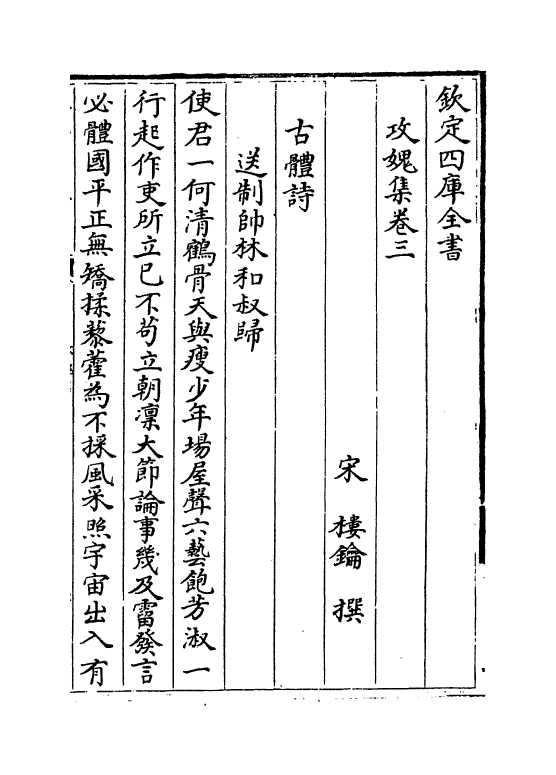 欽定四庫全書
攻媿集卷三
宋 樓鑰 撰
古體詩
送制帥林和叔歸
使君一何清鶴骨天與瘦少年場屋聲六藝飽芳漱一
行起作吏所立已不苟立朝凜大節論事幾及霤發言
必體國平正無矯揉藜藿為不採風采照宇宙出入有